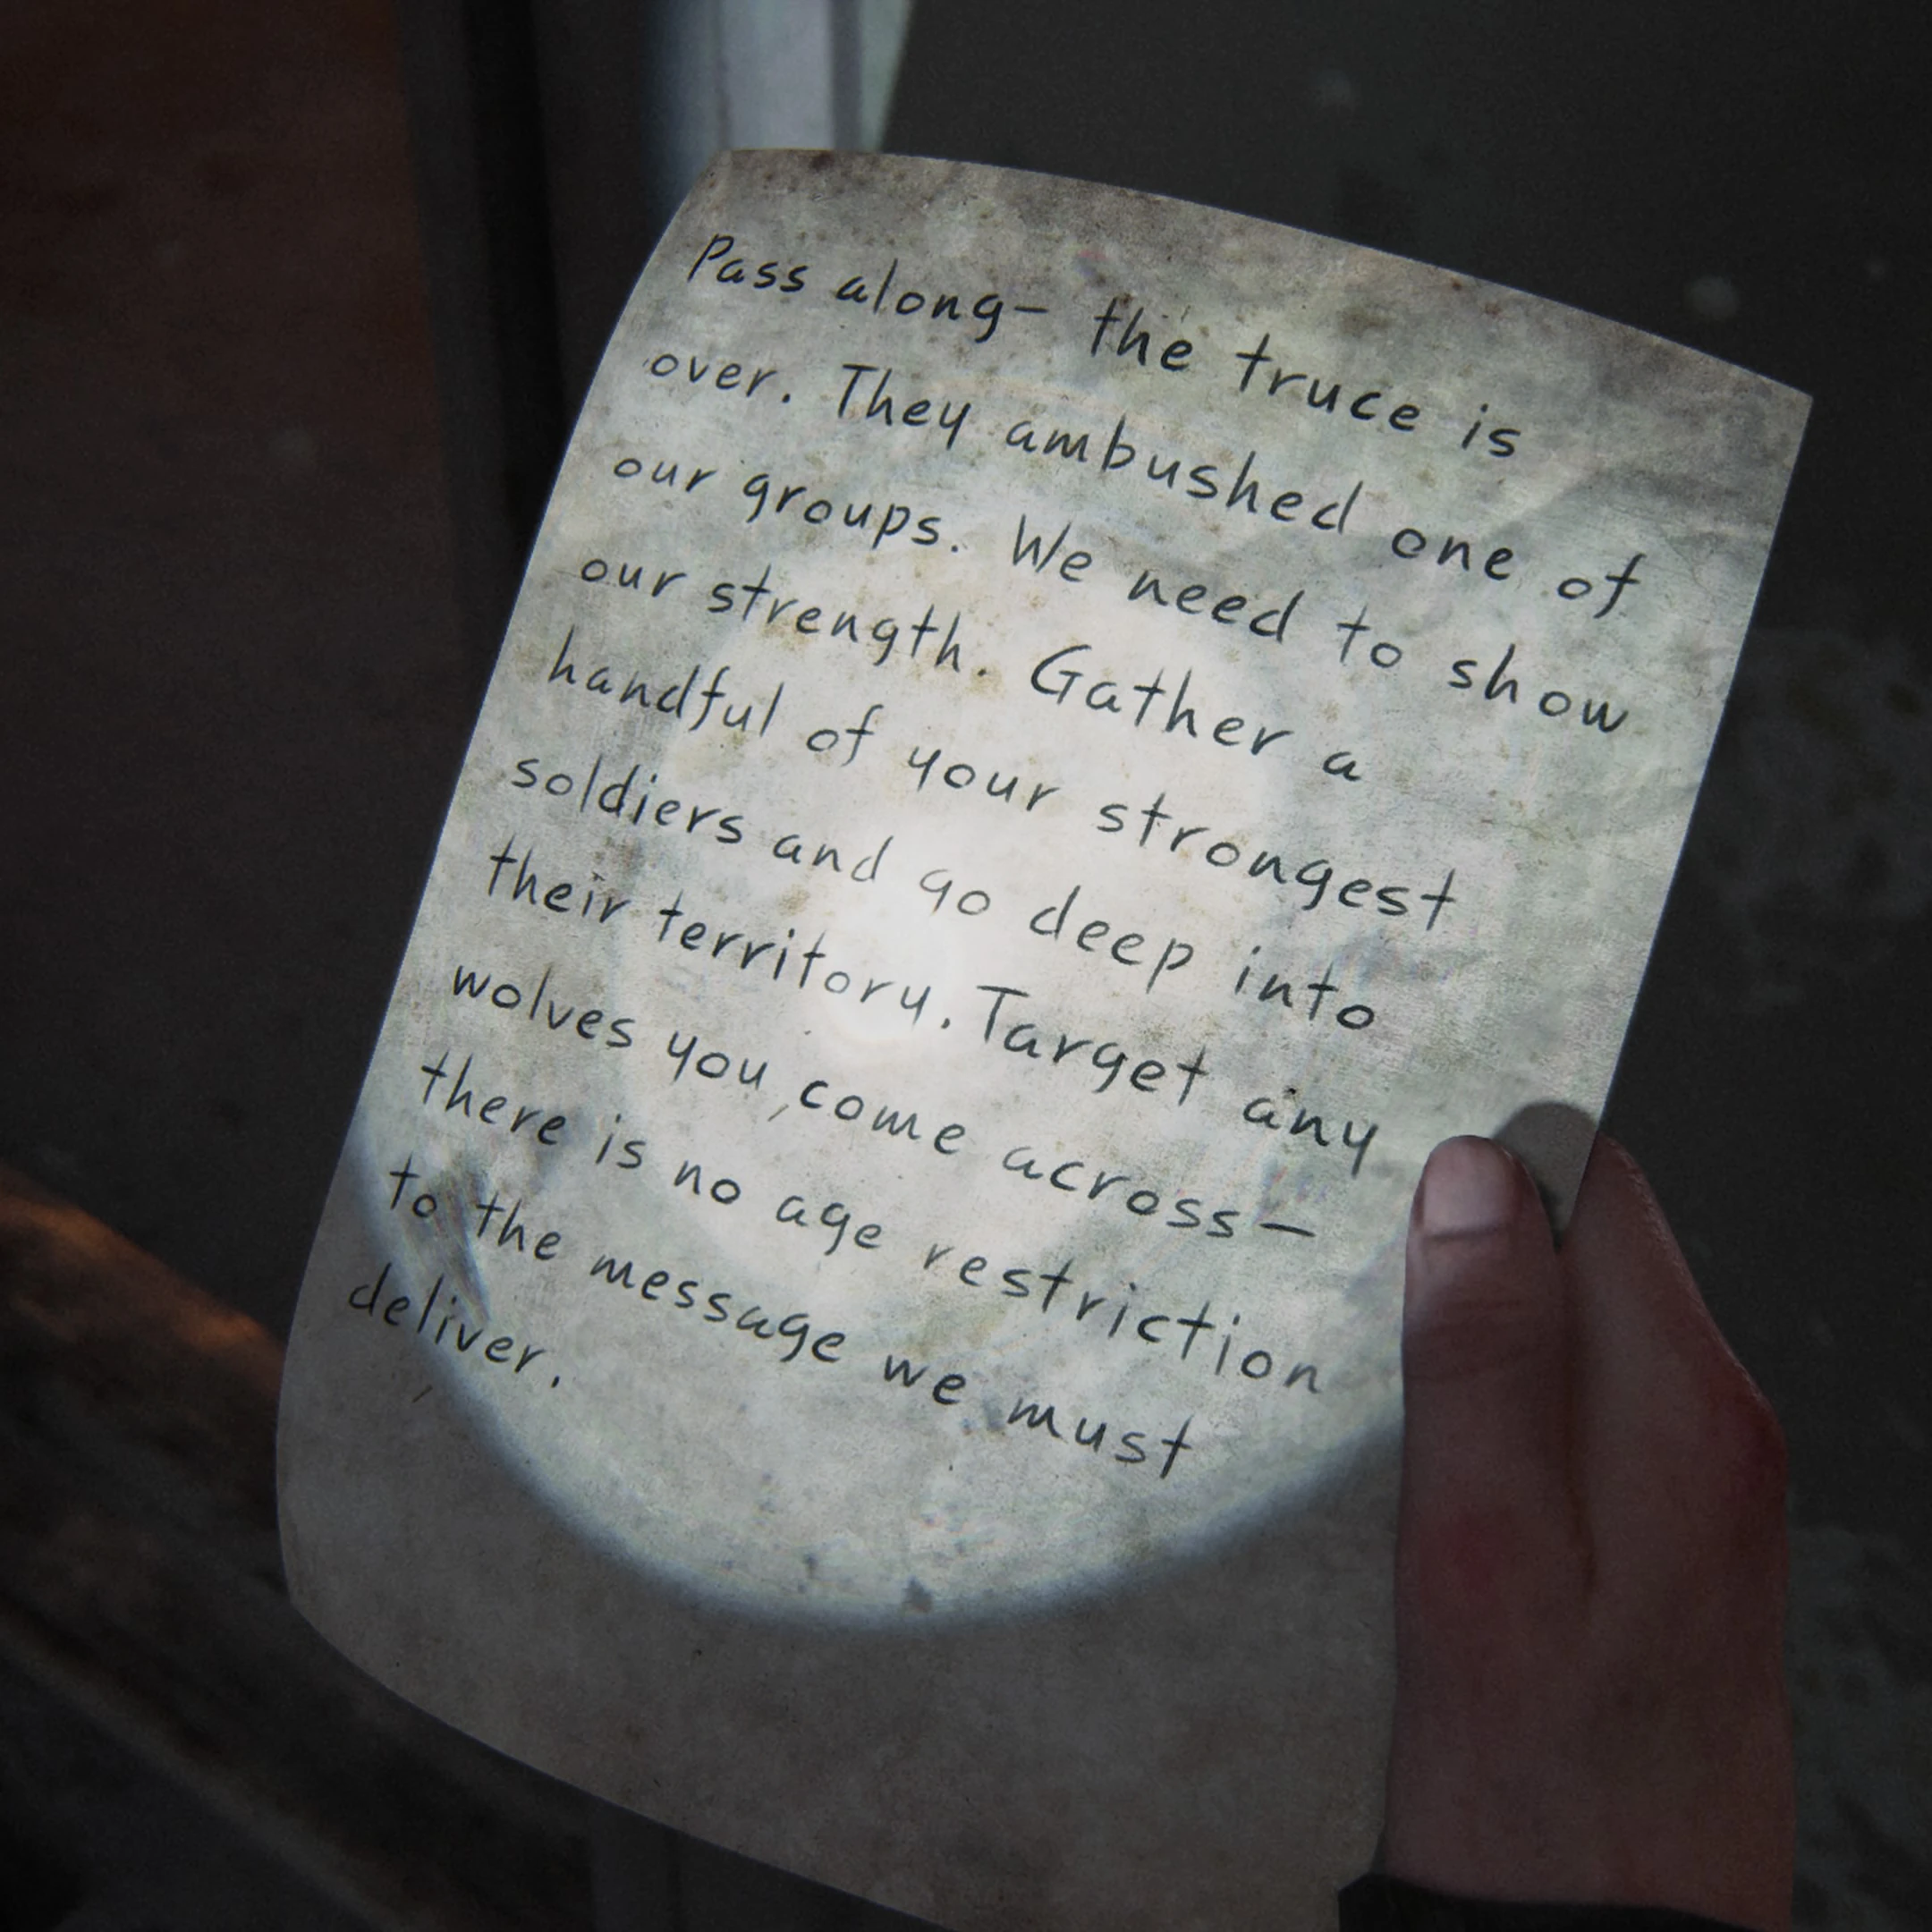 Pass along- the truce is
over. They ambushed one of
our groups. We need to show
our strength. Gather a
handful of your strongest
soldiers and go deep into
their territory. Target any
wolves you come across-
there is no age restriction
to the message we must
deliver.